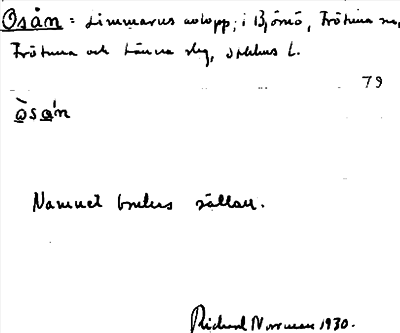 Osån = Limmarens avlopp; i Björnö, Frötuna sn,
Frötuna och Länna slg, Sthlms L.
79
òsa'n
Namnet brukas sällan.
Richard Norrman 1930.